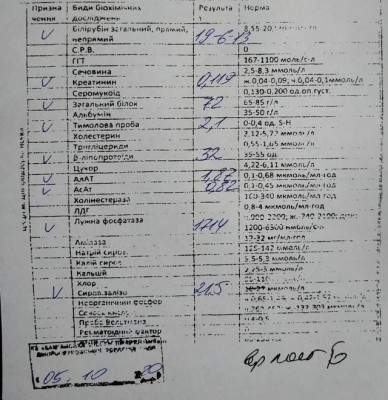 Призна чення Види біохімічних досліджень Результа т Норма
V Білірубін загальний, прямий, непрямий 19-6-13 8,55-20,
С.Р.В. 0
ГГТ 167-1100 моль/с-л
Сечовина 2,5-8,3 ммоль/л
V Креатинин 0,119 ж.0,04-0,09; ч.0,04-0,1ммоль/л
Серомукоїд 0,130-0,200 од.оп.густ.
V Загальний білок 72 65-85 г/л
Альбумін 35-50 г/л
V Тимолова проба 2,1 0-0,4 од. S-H
Холестерин 2,12-5,72 ммоль/л
Тригліцериди 0,55-1,65 ммоль/л
V β-ліпопротеїди 32 35-55 од
Цукор 4,22-6,11 ммоль/л
V АлАТ 1,87 0,1-0,68 мкмоль/мл-год
V АсАт 0,82 0,1-0,45 мкмоль/мл-год
Холінестераза 160-340 мкмоль/мл-год
ЛДГ 0,8-4 мкмоль/мл-год
V Лужна фосфатаза 1714
1200-6300 нмоль/с-л
Амілаза 12-32 мг/мл-год
Натрій сиров. 125-142 ммоль/л
Калій сиров. 3,5-5,3 ммоль/л
Кальцій 2,25-3 ммоль/л
Хлор
V Сиров.залізо 21.5
Неорганічний фосфор
Сечова кисл.
Проба Вельтмана
Ревматоїдний фактор
05. 10 20